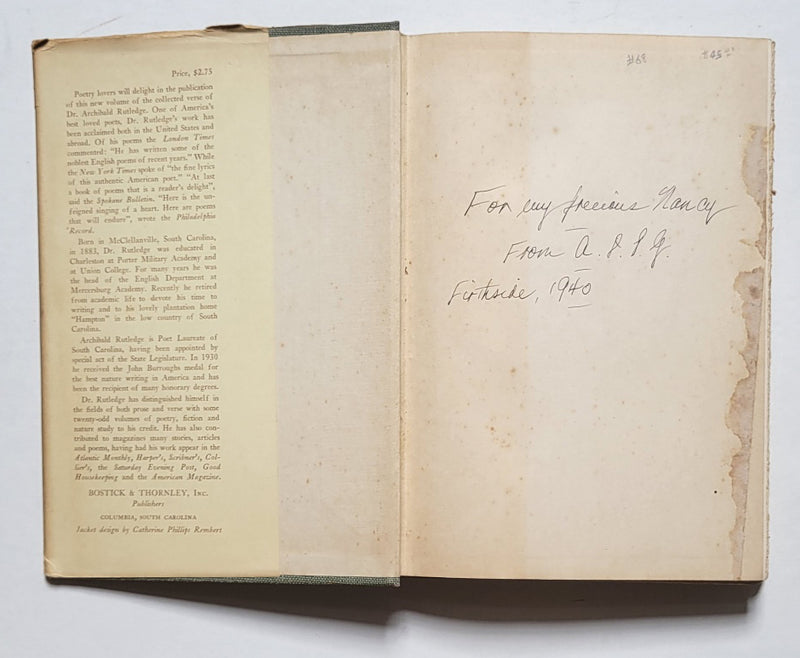 Price, $2.75
Poetry lovers will delight in the publication
of this new volume of the collected verse of
Dr. Archibald Rutledge. One of America's
best loved poets, Dr. Rutledge's work has
been acclaimed both in the United States and
abroad. Of his poems the London Times
commented: "He has written some of the
noblest English poems of recent years." While
the New York Times spoke of "the fine lyrics
of this authentic American poet." "At last
a book of poems that is a reader's delight",
said the Spokane Bulletin. "Here is the un-
feigned singing of a heart. Here are poems
that will endure", wrote the Philadelphia
Record.
Born in McClellanville, South Carolina,
in 1883, Dr. Rutledge was educated in
Charleston at Porter Military Academy and
at Union College. For many years he was
the head of the English Department at
Mercersburg Academy. Recently he retired
from academic life to devote his time to
writing and to his lovely plantation home
"Hampton" in the low country of South
Carolina.
Archibald Rutledge is Poet Laureate of
South Carolina, having been appointed by
special act of the State Legislature. In 1930
he received the John Burroughs medal for
the best nature writing in America and has
been the recipient of many honorary degrees.
Dr. Rutledge has distinguished himself in
the fields of both prose and verse with some
twenty-odd volumes of poetry, fiction and
nature study to his credit. He has also con-
tributed to magazines many stories, articles
and poems, having had his work appear in the
Atlantic Monthly, Harper's, Scribner's, Col-
lier's, the Saturday Evening Post, Good
Housekeeping and the American Magazine.
BOSTICK & THORNLEY, INC.
Publishers
COLUMBIA, SOUTH CAROLINA
Jacket design by Catherine Phillips Rembert
For my precious Nancy
From A.
1940